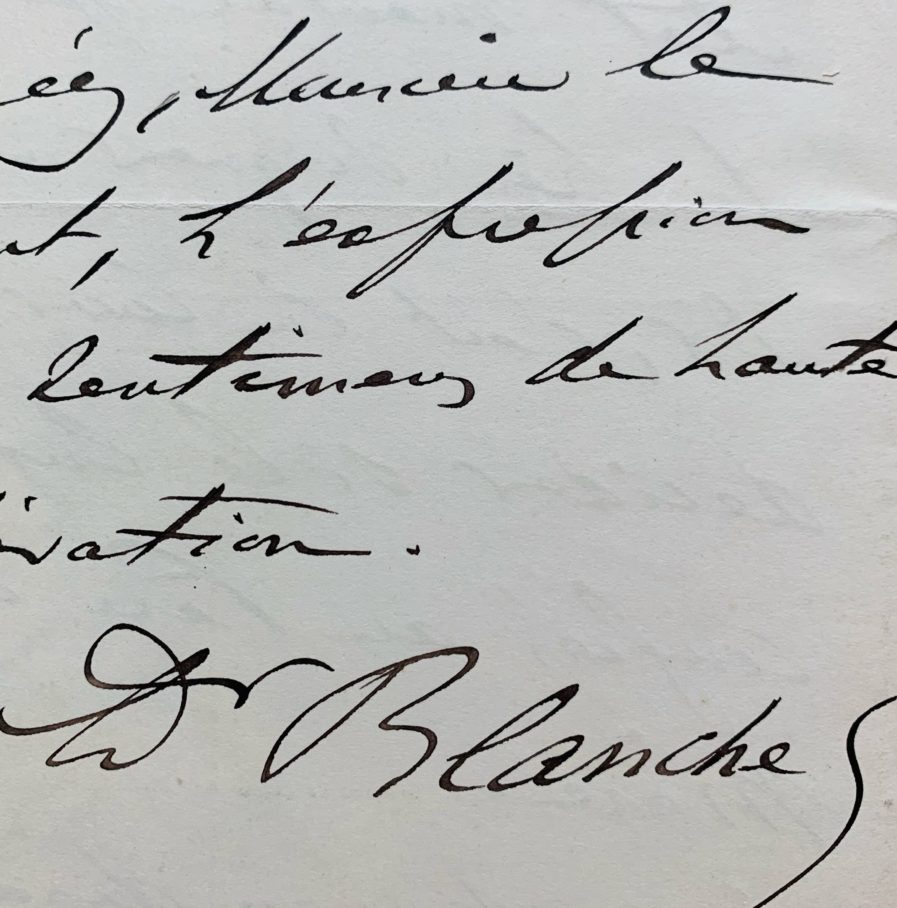 éez, Monsieur le
nt, l'expression
sentimens de haute
ération.
Dr Blanche